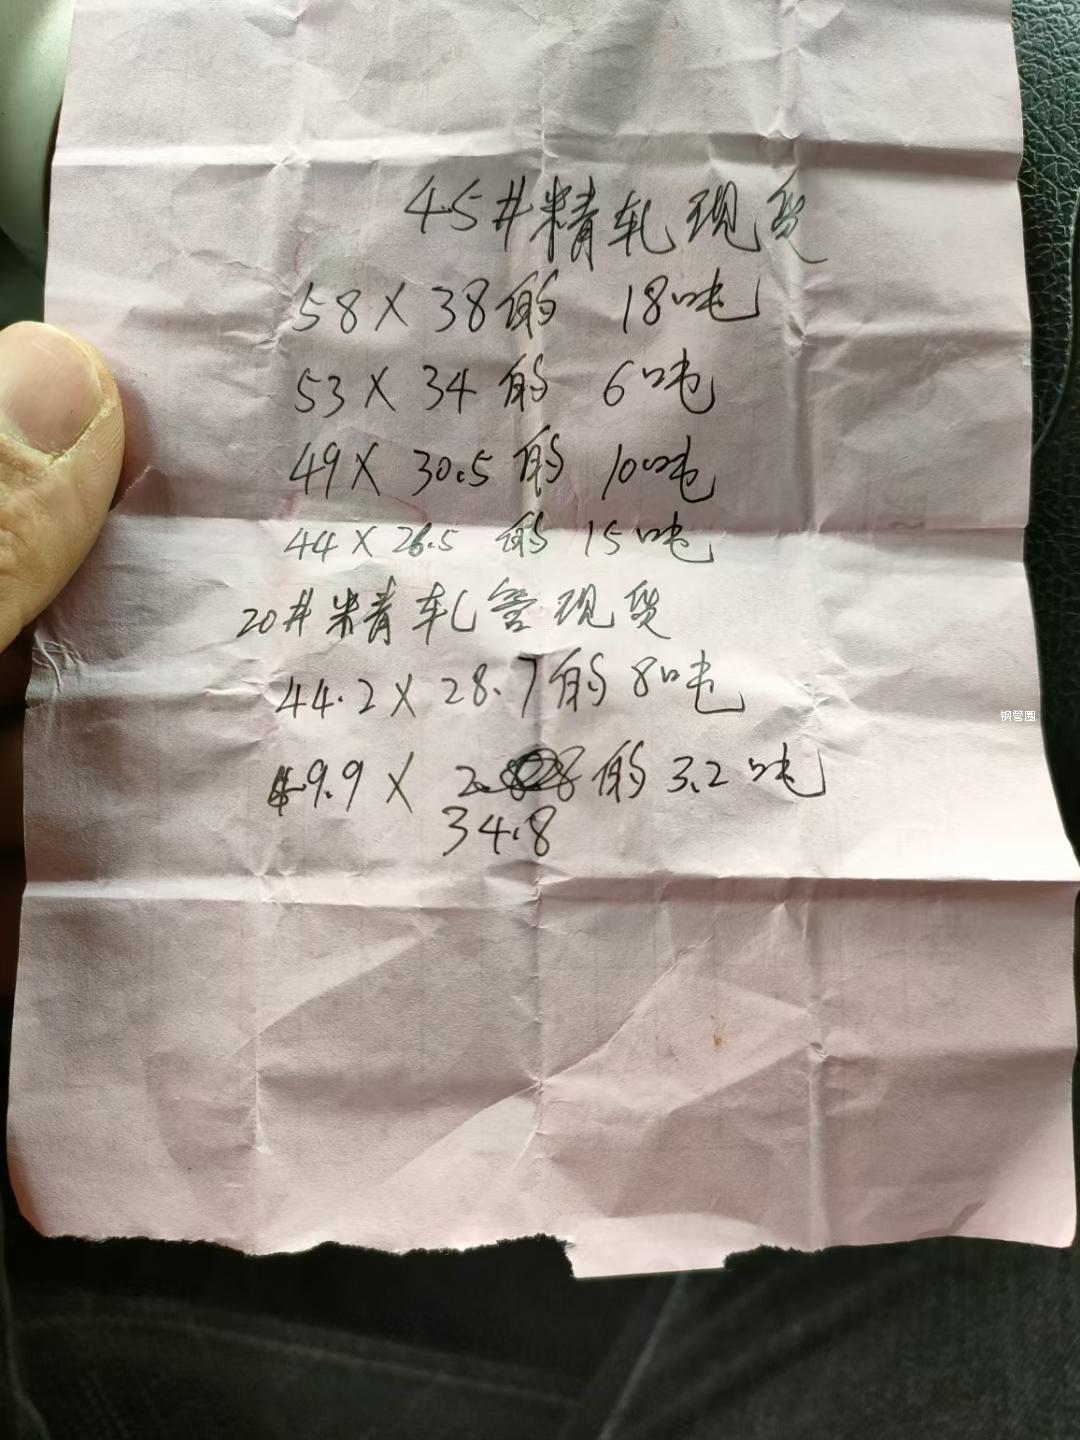 45#精轧现货
58X38的 18吨
53X34的 6吨
49X30.5的 10吨
44X26.5的 15吨
20#精轧管现货
44.2X28.7的8吨
49.9X 的3.2吨
34.8
钢管圈